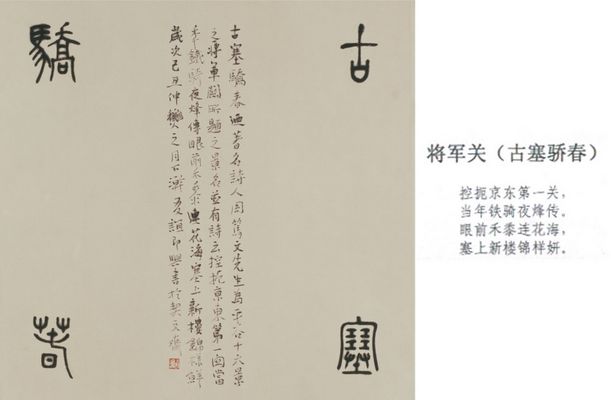 古
塞
驕
春
古塞驕春迺著名詩人周篤文先生為平谷十六景
之將軍關所題之景名並有詩云控扼京東第一關當
年鐵騎夜烽傳眼前禾黍連花海塞上新樓錦樣鮮
歲次己丑仲秋之月下澣誼即興書於契文齋
将军关（古塞骄春）
控扼京东第一关，
当年铁骑夜烽传。
眼前禾黍连花海，
塞上新楼锦样妍。